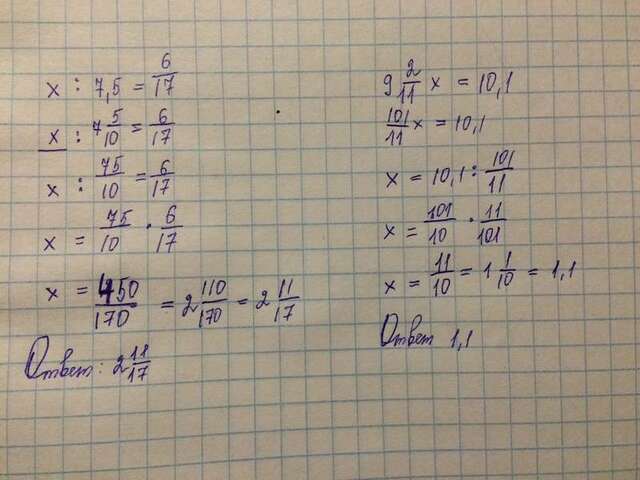 x : 7,5 = 6/17
x : 7 5/10 = 6/17
x : 75/10 = 6/17
x = 75/10 · 6/17
x = 450/170 = 2 110/170 = 2 11/17
Ответ: 2 11/17
9 2/11 x = 10,1
101/11 x = 10,1
x = 10,1 : 101/11
x = 101/10 · 11/101
x = 11/10 = 1 1/10 = 1,1
Ответ 1,1